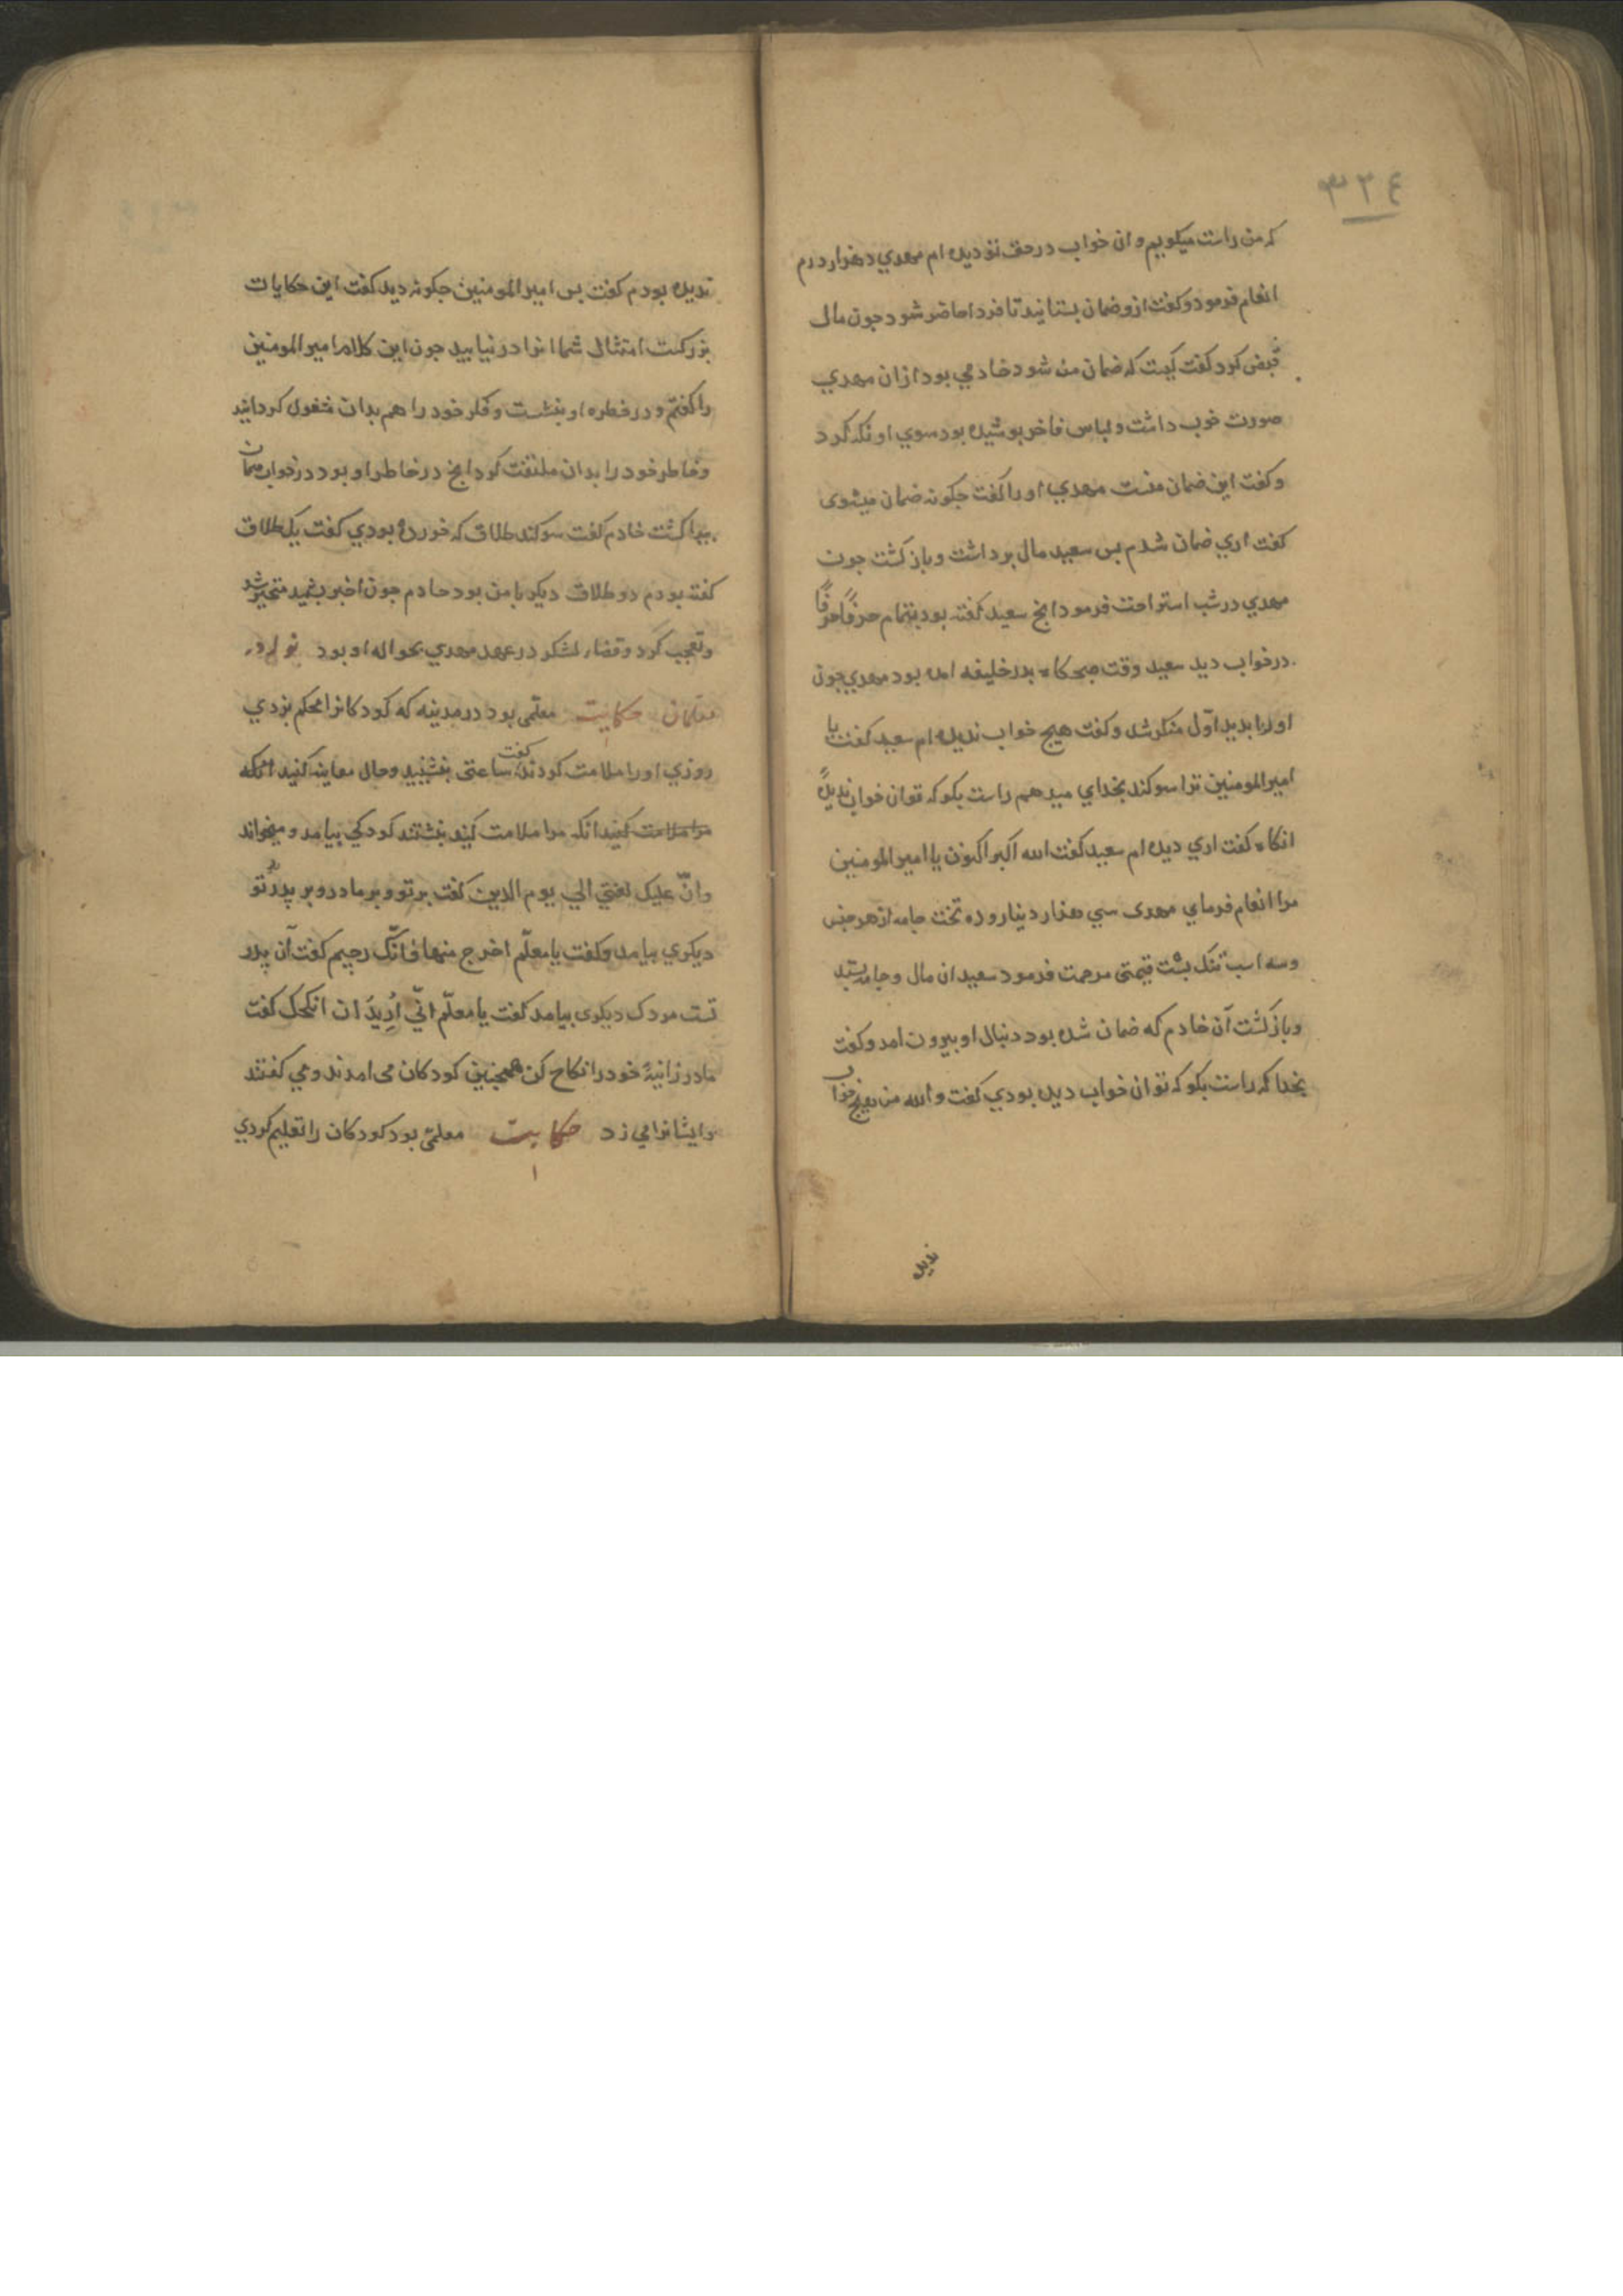 ٣٢٤
که من راست میکویم و ان خواب در حق تو دیده ام مهدي ده هزار درم
انعام فرمود و کفت ازو ضمان بستانید تا فردا حاضر شود جون مال
قبض کرد کفت کیست که ضمان من شود خادمي بود ازان مهدي
صورت خوب داشت و لباس فاخر بوشیده بود سوي او نکه کرد
و کفت این ضمان منست مهدي او را کفت جکونه ضمان میشوی
کفت اري ضمان شدم بس سعید مال برداشت و باز کشت جون
مهدي در شب استراحت فرمود انج سعید کفته بود بتمام حرفًا حرفًا
در خواب دید سعید وقت صبحکاه بدر خلیفه امده بود مهدي جون
او را بدید اوّل منکر شد و کفت هیج خواب ندیده ام سعید کفت یا
امیر المومنین ترا سوکند بخداي میدهم راست بکو که تو ان خواب ندیدهٔ
انکاه کفت اري دیده ام سعید کفت الله اکبر اکنون یا امیر المومنین
مرا انعام فرماي مهدی سي هزار دینار و ده تخت جامه از هر جنس
و سه اسب تنک بشت قیمتی مرحمت فرمود سعید ان مال و جامه بستد
و باز کشت آن خادم که ضمان شده بود دنبال او بیرون امد و کفت
بخدا که راست بکو که تو ان خواب دیده بودي کفت والله من هیج خواب
ندیده
ندیده بودم کفت بس امیر المومنین جکونه دید کفت این حکایات
بزرکست امتثال شما انرا در نیابید جون این کلام امیر المومنین
را کفتم و در خطره او بنشست و فکر خود را هم بدان مشغول کردانید
و خاطر خود را بدان ملتفت کرد انج در خاطر او بود در خواب همان
بیدا کشت خادم کفت سوکند طلاق که خوردهٔ بودي کفت یک طلاق
کفته بودم دو طلاق دیکر با من بود خادم جون اخبر بشنید متحیر شد
و تعجب کرد و قضاء لشکر در عهد مهدي بحواله او بود نوادر
معلمان حکایت معلّمی بود در مدینه که کودکانرا محکم بزدي
روزي او را ملامت کردند کفت ساعتی بنشینید و حال معاینه کنید انکه
مرا ملامت کنید انکه مرا ملامت کنید بنشستند کودکي بیامد و میخواند
وانّ علیک لعنتي الي یوم الدین کفت بر تو و بر مادر و بر پدر تو
دیکري بیامد و کفت یا معلّم اخرج منها فانّک رجیم کفت آن پدر
تست مردک دیکری بیامد کفت یا معلّم انّي اُریدَ ان انکحک کفت
مادر زانیهٔ خود را نکاح کن همجنین کودکان می امدند و مي کفتند
و ایشانرا مي زد حکایت معلمیّ بود کودکان را تعلیم کردي